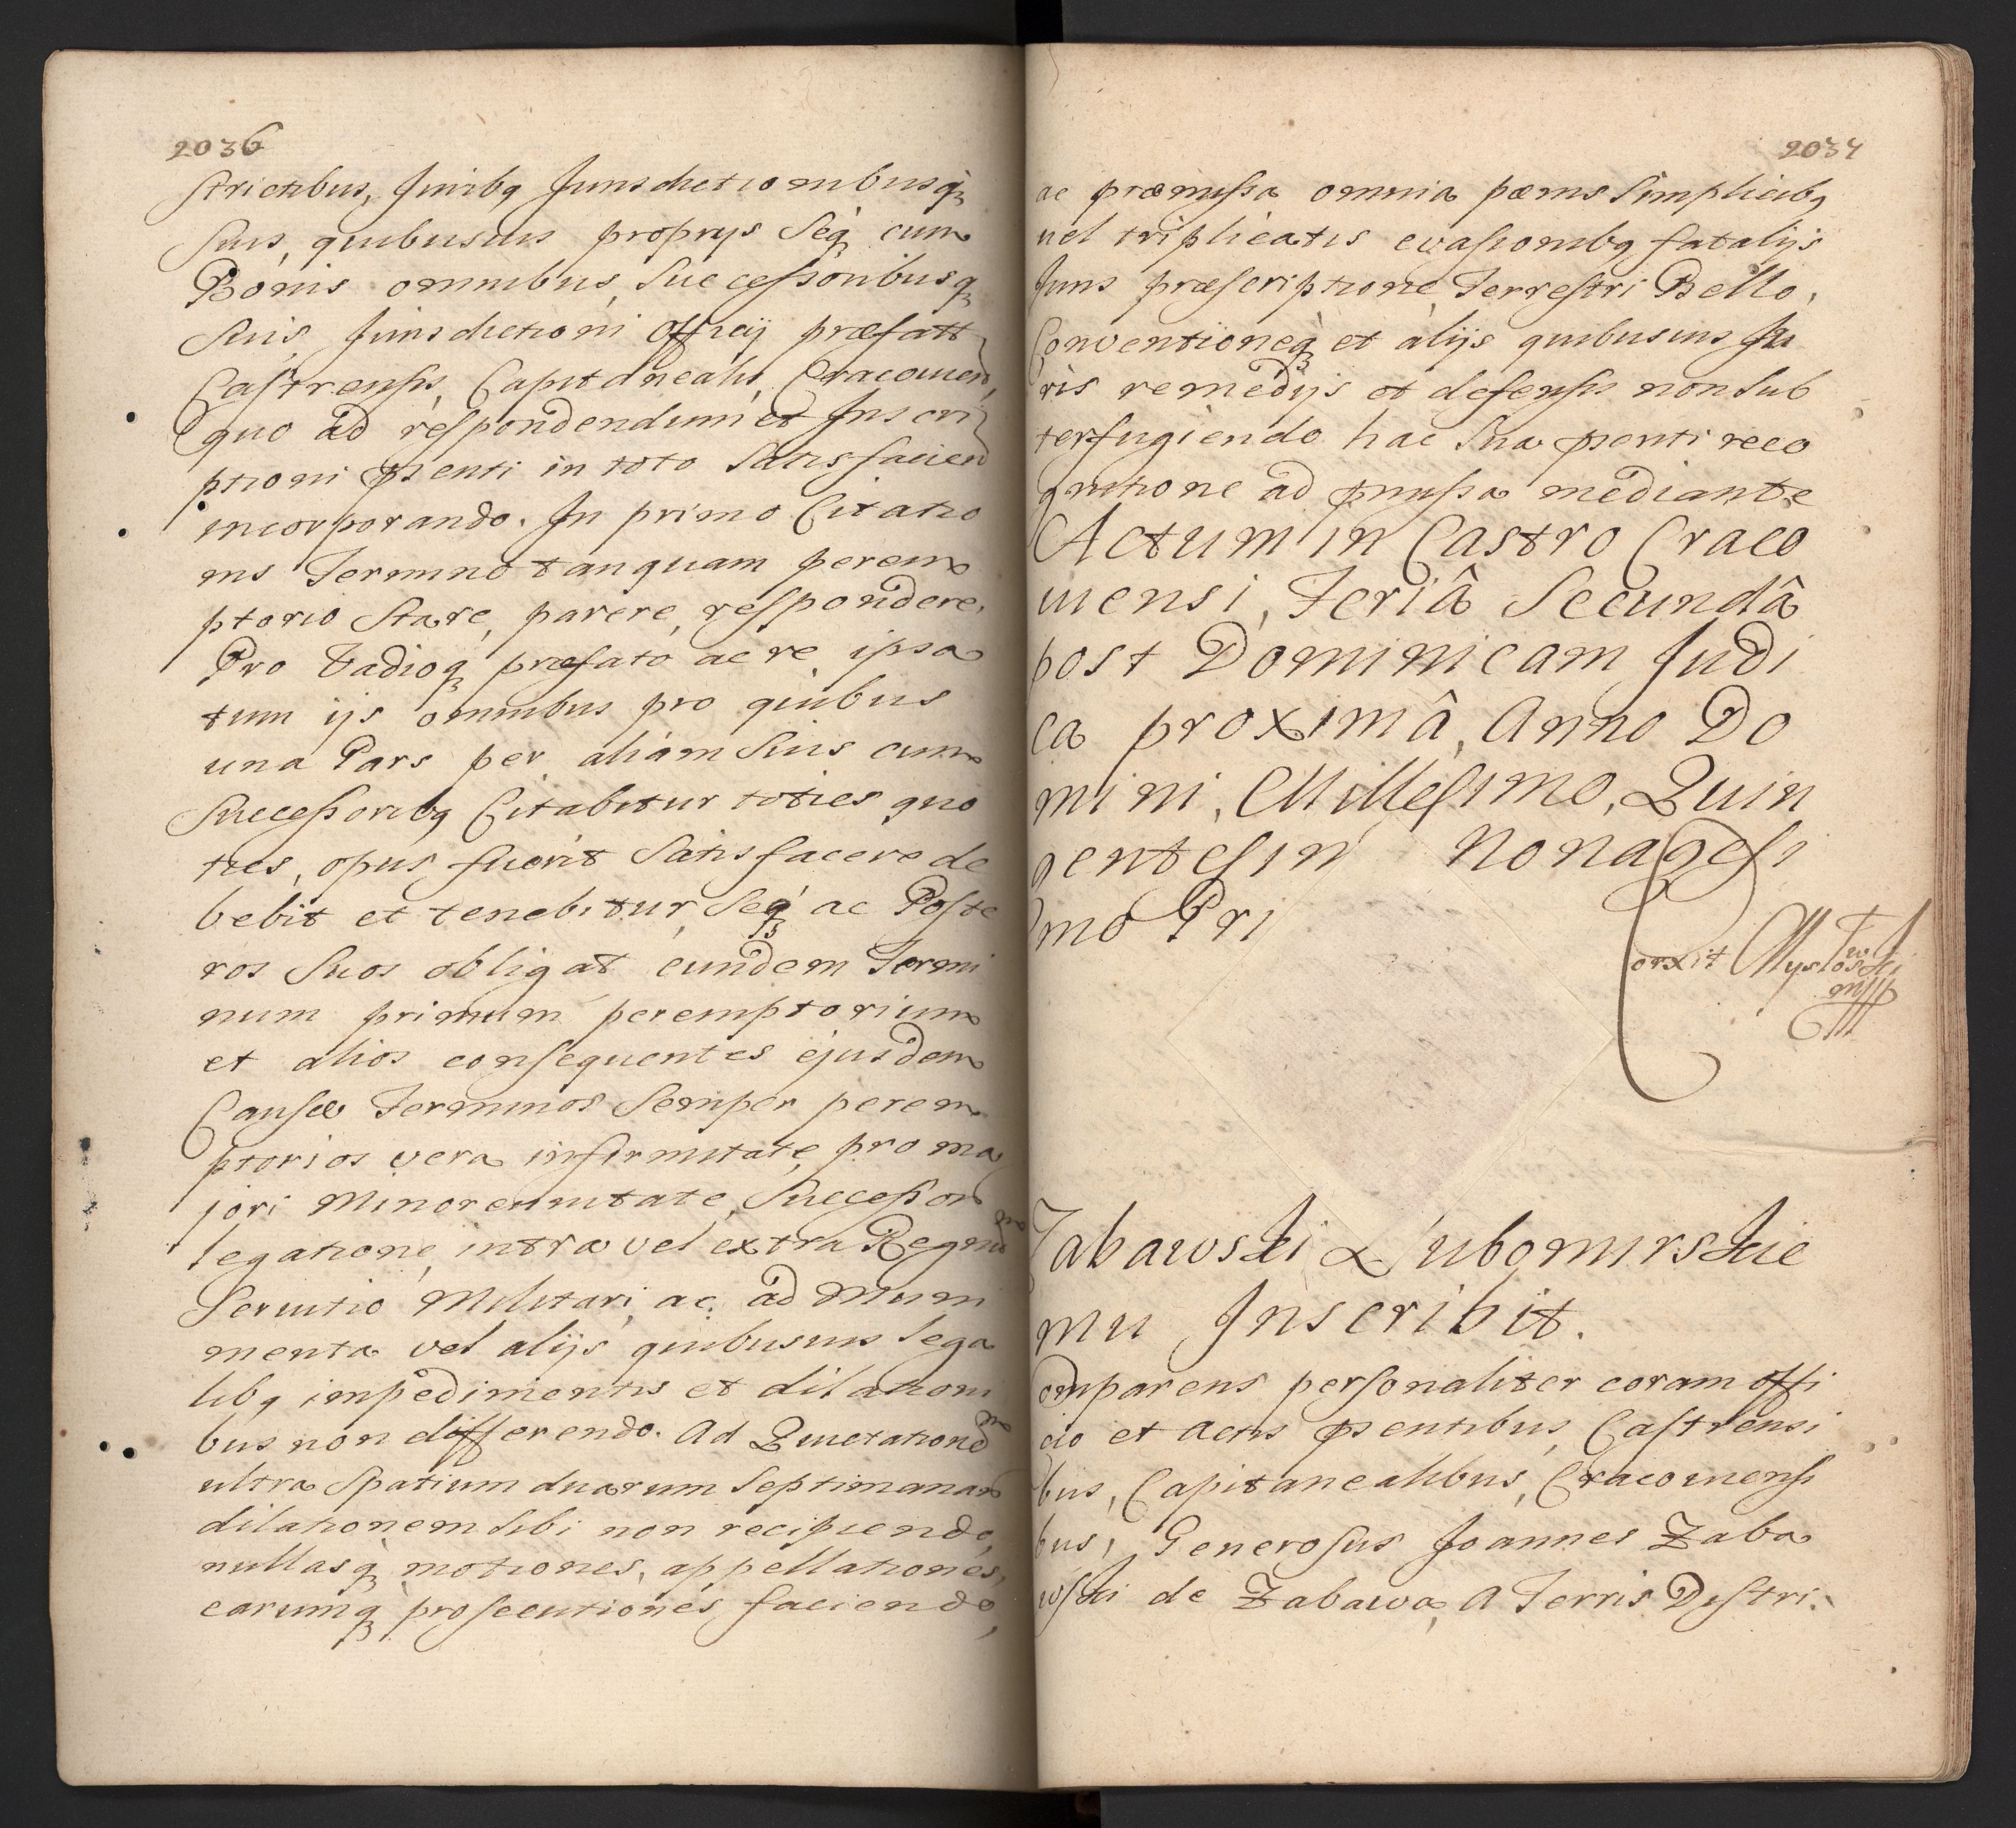 2036
strictibus, Juribq Jurisdictionibusq
suis, quibusuis proprys Seq cum
Bonis omnibus, Successoribusq
suis, Jurisdictioni officij præfatt
Castrensis, Capitanealis, Cracouien,
quo ad respondendum et Inscri
ptioni psenti in toto Satisfacien
incorporando. In primo Citatio
nis Termino tanquam perem
ptorio Stare, parere, respondere,
Pro Vadioq præfato ac re ipsa
tum ijs omnibus pro quibus
una Pars per aliam Suis cum
Successoribq Citabitur toties quo
ties, opus fuerit Satisfacere de
bebit et tenebitur, Seq ac Poste
ros Suos obligat eundem Termi
num primum peremptorium
et alios consequentes ejusdem
Causæ Terminos Semper perem
ptorios vera infirmitate, pro ma
jori Minorennitate, Successor
legatione, intra vel extra Regnum
Seruitio Militari, ac ad Muni
menta vel alijs quibusuis lega
libq impedimentis et dilationi
bus non differendo. Ad Quietationem
ultra Spatium duarum Septimanar
dilationem sibi non recipiendo,
nullasq motiones, appellationes,
earumq prosecutiones faciendo,
2037
ac præmissa omnia pœnis Simplicibq
uel triplicatis euasionibq fatalijs
Juris præscriptione, Terrestri Bello,
Conventioneq et alijs quibusuis Ju
ris remedijs et defensis non Sub
terfugiendo hac Sua psenti reco
gnitione ad pmissa mediante
Actum in Castro Craco
uiensi, Feriâ Secundâ
post Dominicam Judi
ca proximâ, Anno Do
mini, Millesimo, Quin
gentesim Nonagesi
mo Pri
Zabawski Lubomirskie
mu Inscribit.
Comparens personaliter coram offi
cio et Actis psentibus, Castrensi
bus, Capitanealibus, Cracouiensi
bus, Generosus Joannes Zaba
wski de Zabawa, A Terris Distri.